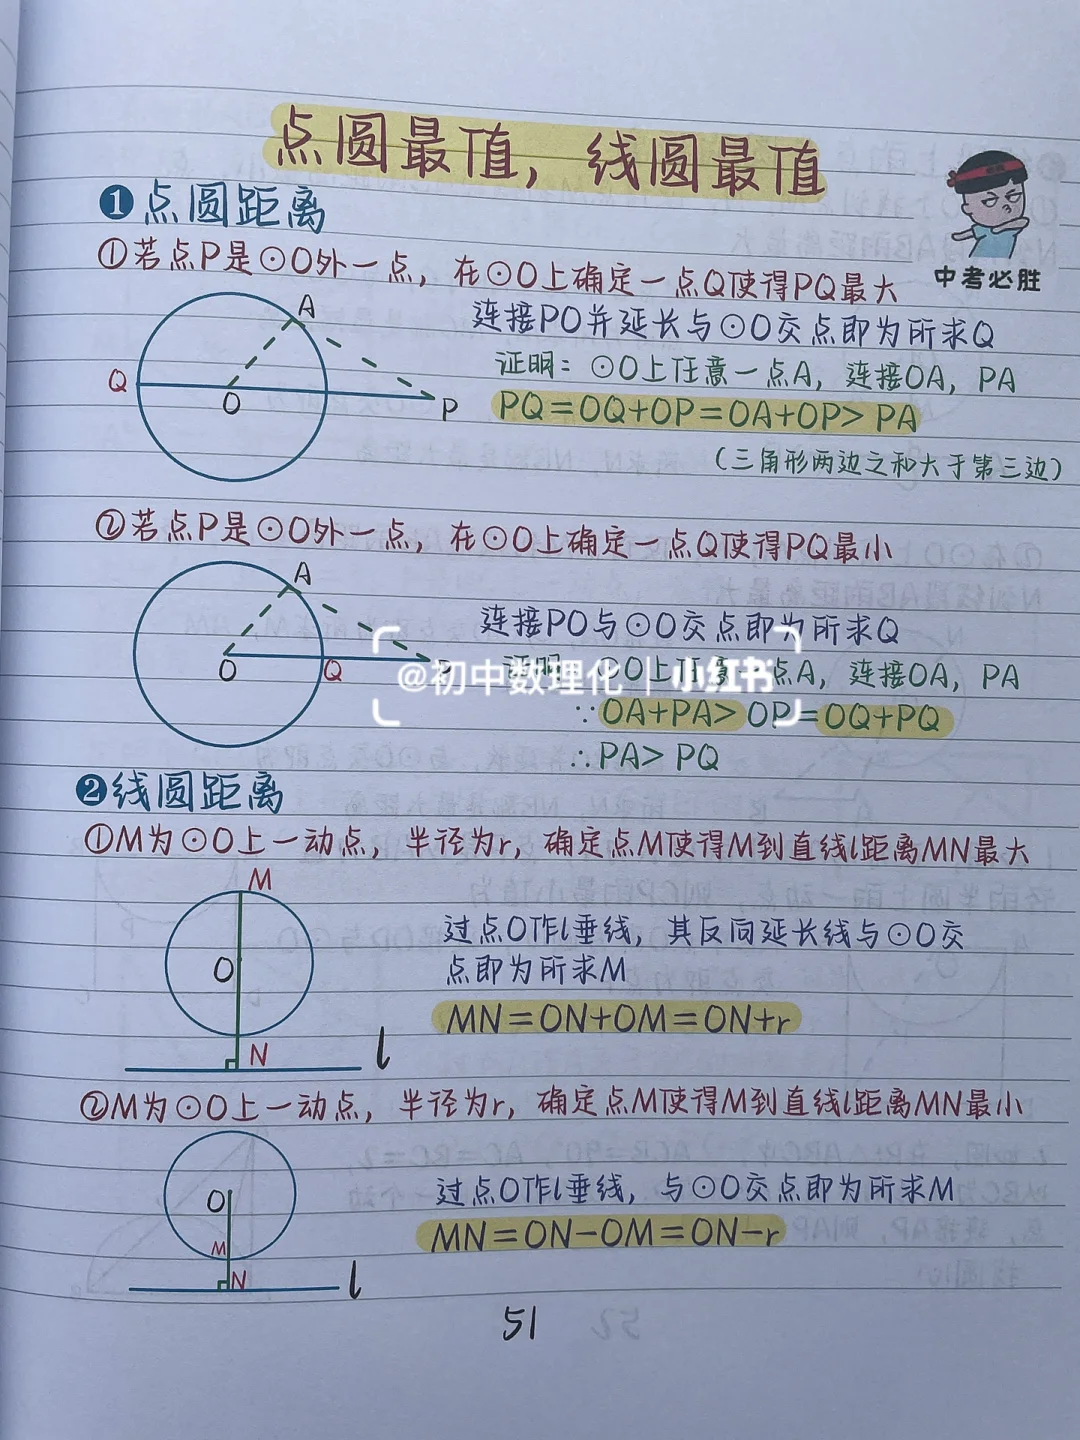 点圆最值，线圆最值
❶点圆距离
中考必胜
①若点P是⊙O外一点，在⊙O上确定一点Q使得PQ最大
连接PO并延长与⊙O交点即为所求Q
证明：⊙O上任意一点A，连接OA，PA
PQ=OQ+OP=OA+OP>PA
（三角形两边之和大于第三边）
A
Q
O
P
②若点P是⊙O外一点，在⊙O上确定一点Q使得PQ最小
A
连接PO与⊙O交点即为所求Q
O
Q
P
@初中数理化 | 小红书
证明：⊙O上任意一点A，连接OA，PA
∵OA+PA>OP=OQ+PQ
∴PA>PQ
❷线圆距离
①M为⊙O上一动点，半径为r，确定点M使得M到直线l距离MN最大
M
过点O作l垂线，其反向延长线与⊙O交
点即为所求M
O
MN=ON+OM=ON+r
N
l
②M为⊙O上一动点，半径为r，确定点M使得M到直线l距离MN最小
O
过点O作l垂线，与⊙O交点即为所求M
MN=ON-OM=ON-r
M
N
l
51